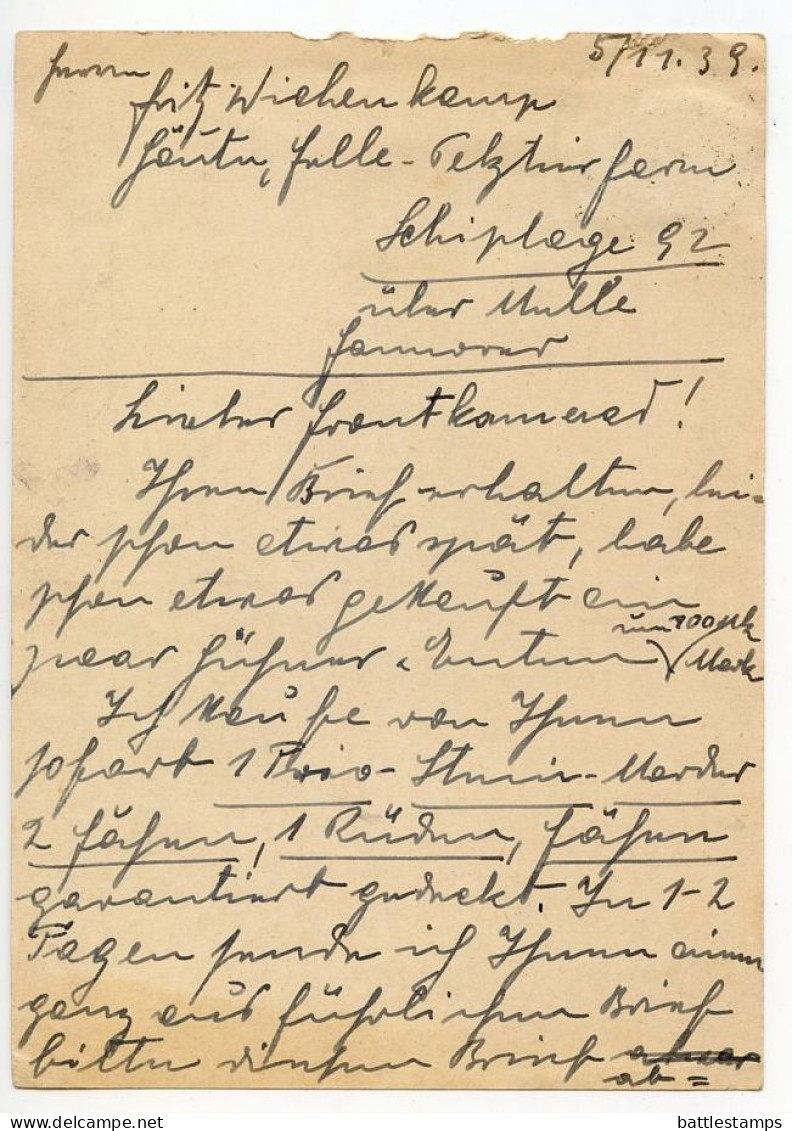 5/11.39.
Herrn
Fritz Wiehenkamp
Häute, Felle-Pelztierfarm
Schiplage 92
über Melle
Hannover
Lieber Frontkamerad!
Ihren Brief erhalten, lei-
der schon etwas spät, habe
schon etwas gekauft ein
paar Hühner u. Enten um 700 Mk
Mark
Ich kaufe von Ihnen
sofort 1 Trio-Stein-Marder
2 Fähen, 1 Rüden, Fähen
garantiert gedeckt. In 1-2
Tagen sende ich Ihnen einen
ganz ausführlichen Brief
bitte diesen Brief
ab=
battlestamps